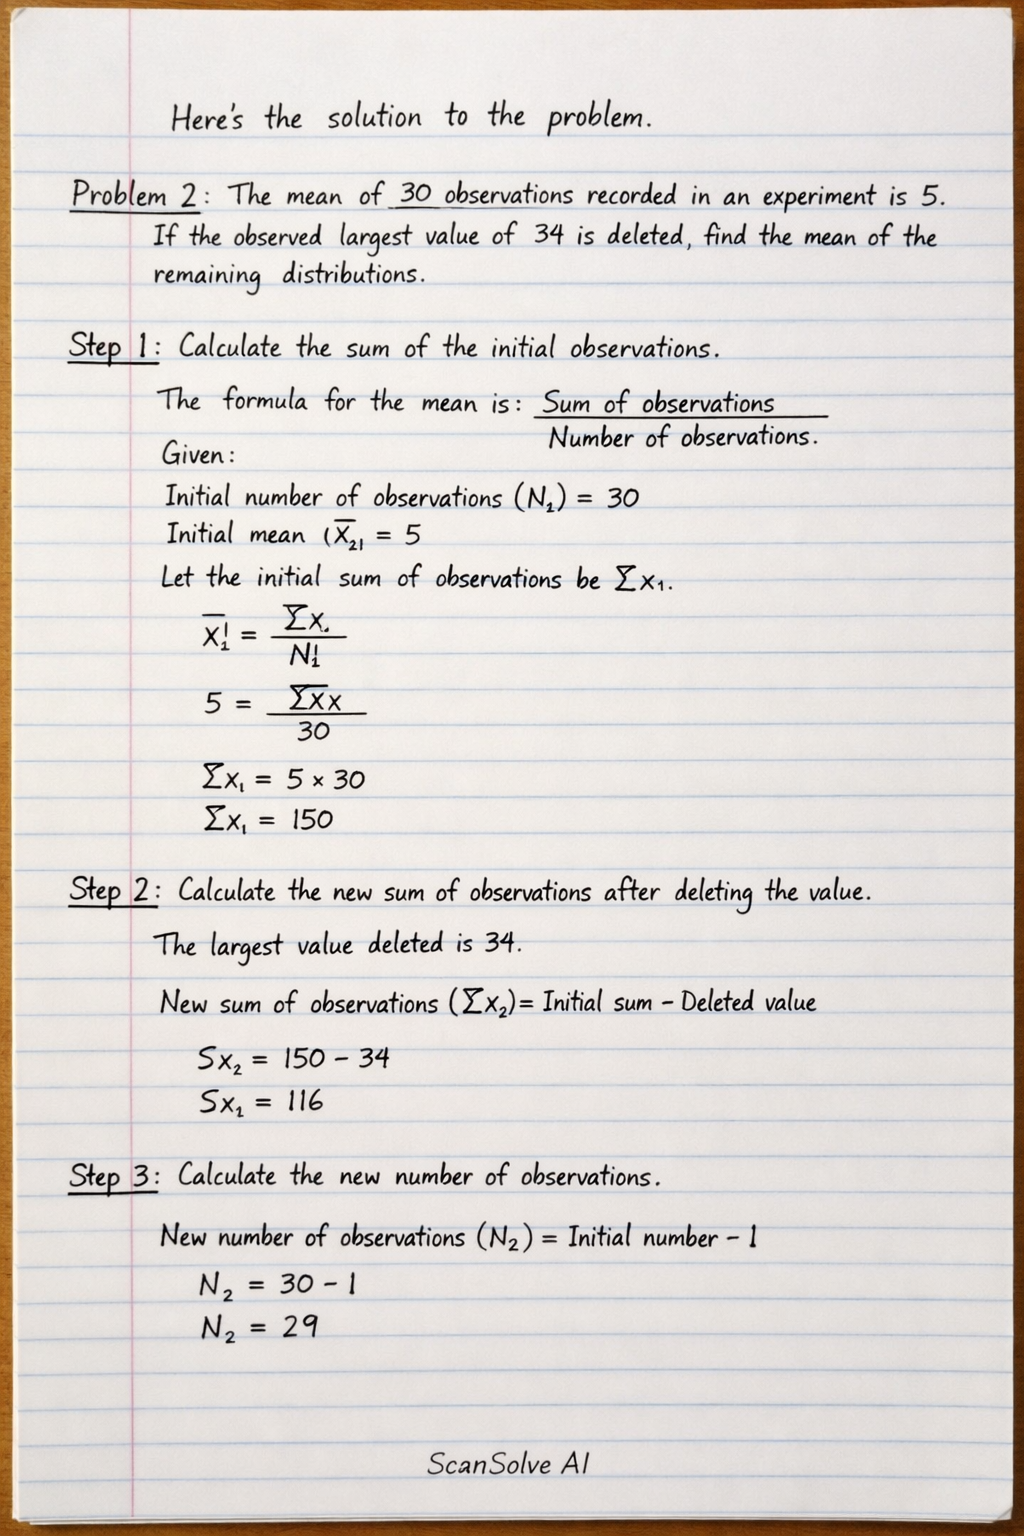 Here's the solution to the problem.
Problem 2: The mean of 30 observations recorded in an experiment is 5.
If the observed largest value of 34 is deleted, find the mean of the
remaining distributions.
Step 1: Calculate the sum of the initial observations.
The formula for the mean is: Sum of observations
Number of observations.
Given:
Initial number of observations (N₁) = 30
Initial mean (X̅₂₁ = 5
Let the initial sum of observations be Σx₁.
x̅!₁ = Σx.
N!₁
5 = Σx̅x
30
Σx₁ = 5 × 30
Σx₁ = 150
Step 2: Calculate the new sum of observations after deleting the value.
The largest value deleted is 34.
New sum of observations (Σx₂)= Initial sum – Deleted value
Sx₂ = 150 – 34
Sx₁ = 116
Step 3: Calculate the new number of observations.
New number of observations (N₂) = Initial number – 1
N₂ = 30 – 1
N₂ = 29
ScanSolve AI